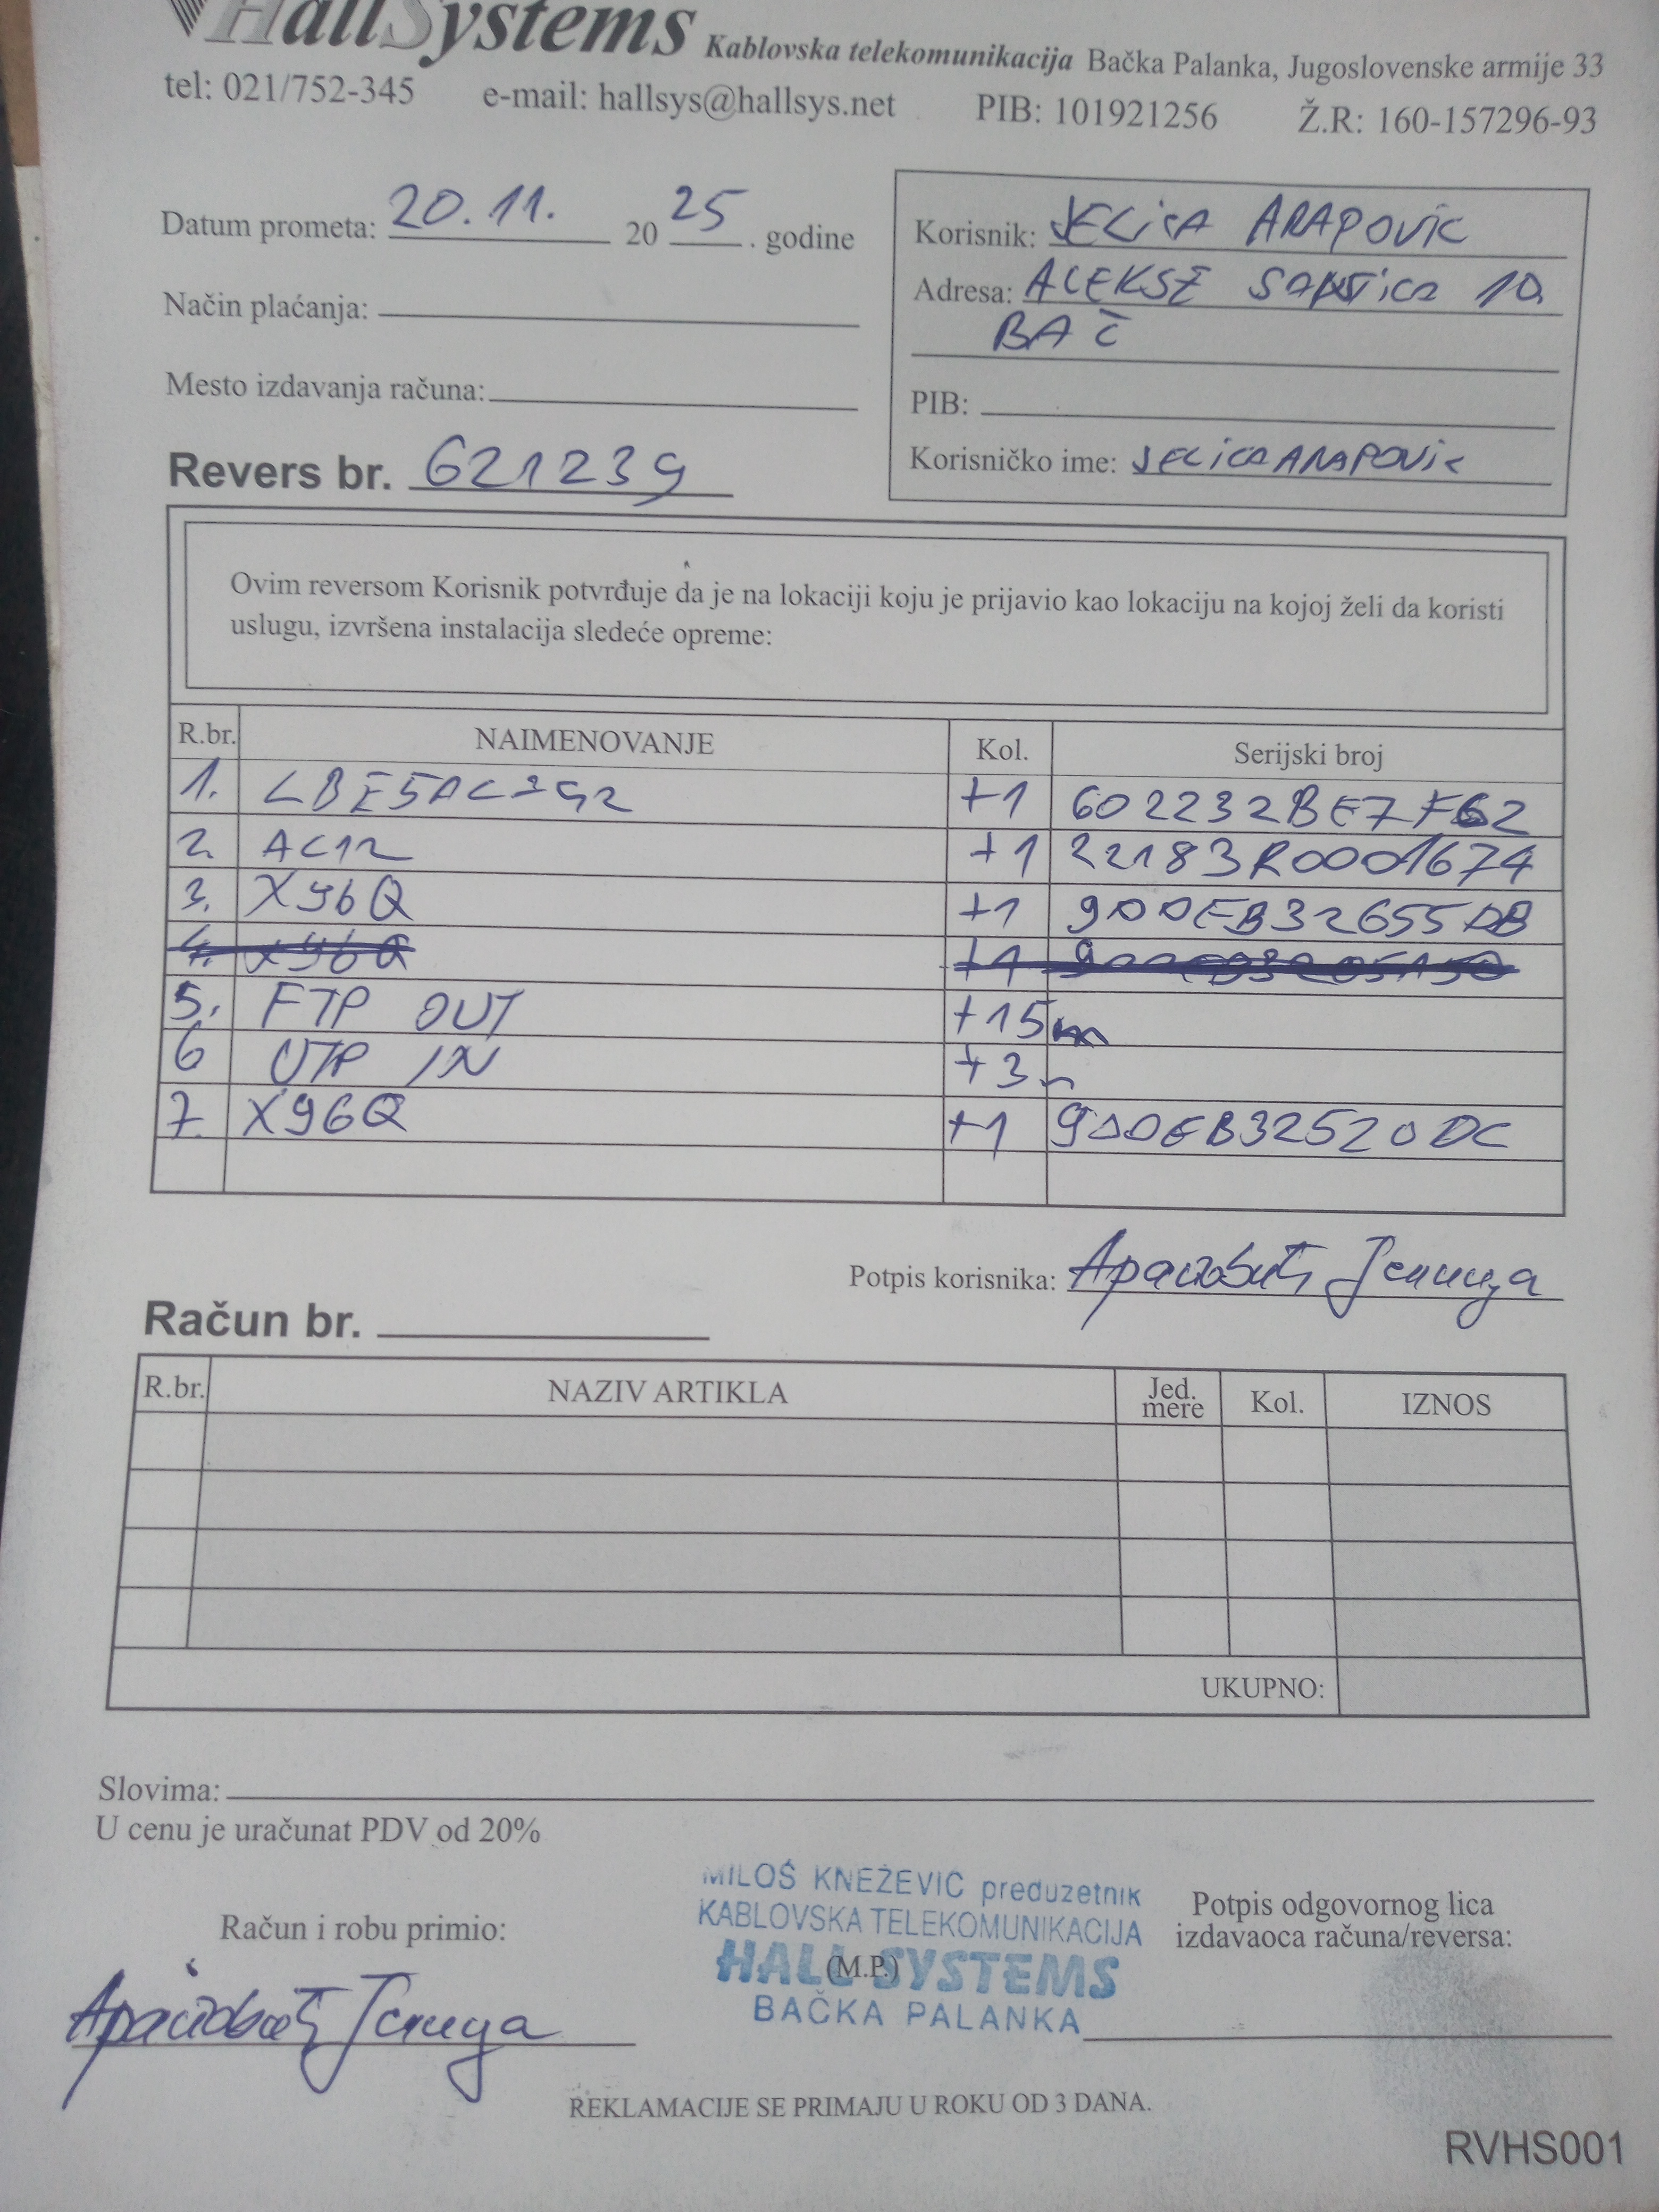 HallSystems Kablovska telekomunikacija Bačka Palanka, Jugoslovenske armije 33
tel: 021/752-345 e-mail: hallsys@hallsys.net PIB: 101921256 Ž.R: 160-157296-93
Datum prometa: 20.11. 2025. godine
Način plaćanja:
Mesto izdavanja računa:
Revers br. 621239
Korisnik: JELICA ARAPOVIC
Adresa: ALEKSE SANTICA 10.
BAČ
PIB:
Korisničko ime: JELICAARAPOVIC
Ovim reversom Korisnik potvrđuje da je na lokaciji koju je prijavio kao lokaciju na kojoj želi da koristi
uslugu, izvršena instalacija sledeće opreme:
R.br. NAIMENOVANJE Kol. Serijski broj
1. +1 602232BE7F62
2. AC12 +1 22183R0001674
3. X96Q +1 900EB32655DB
4. X96Q +1
5. FTP OUT +15m
6 UTP IN +3m
7. X96Q +1 900EB32520DC
Potpis korisnika: Араповић Јелица
Račun br.
R.br. NAZIV ARTIKLA Jed. mere Kol. IZNOS
UKUPNO:
Slovima:
U cenu je uračunat PDV od 20%
MILOŠ KNEŽEVIĆ preduzetnik
KABLOVSKA TELEKOMUNIKACIJA
HALL SYSTEMS
(M.P.)
BAČKA PALANKA
Račun i robu primio:
Араповић Јелица
Potpis odgovornog lica
izdavaoca računa/reversa:
REKLAMACIJE SE PRIMAJU U ROKU OD 3 DANA.
RVHS001